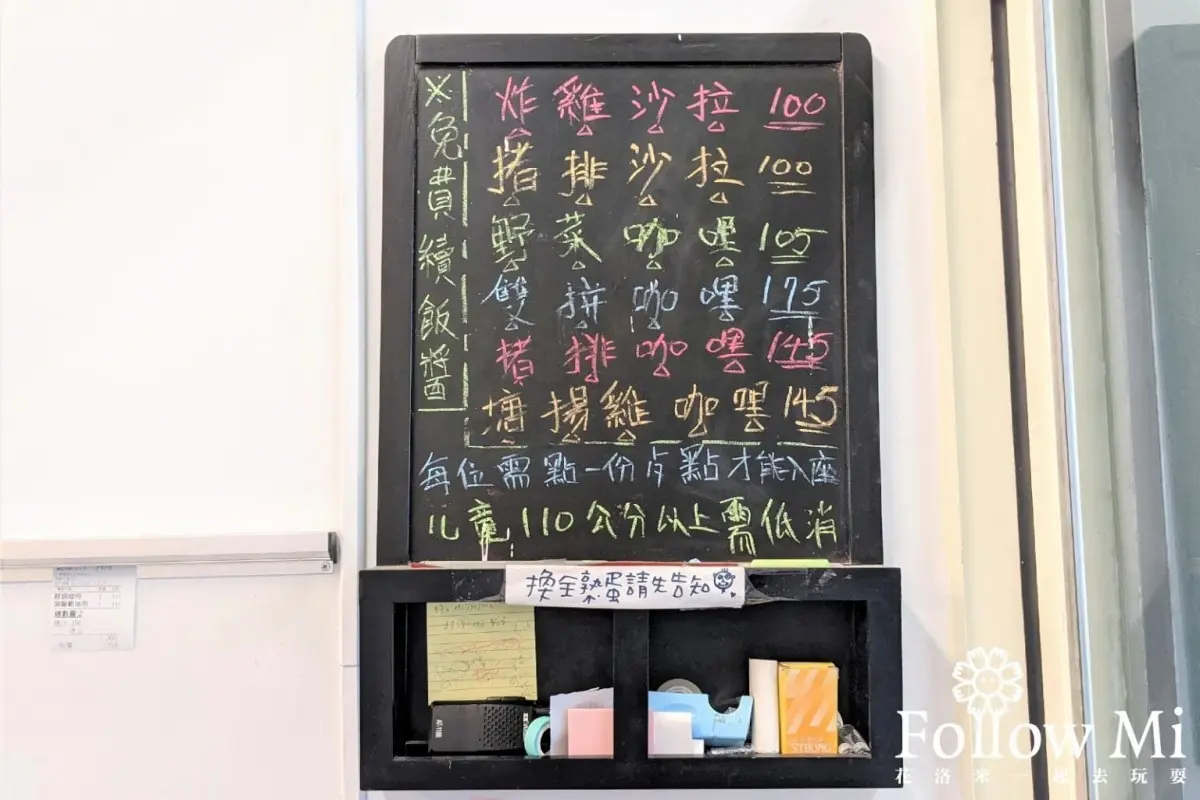 ※免費續飯醬
炸雞沙拉 100
豬排沙拉 100
野菜咖哩 105
雙拼咖哩 175
豬排咖哩 145
唐揚雞咖哩 145
每位需點一份才能入座
儿童110公分以上需低消
換全熟蛋請先告知
STRONG
Follow Mi
花洛米一起去玩耍